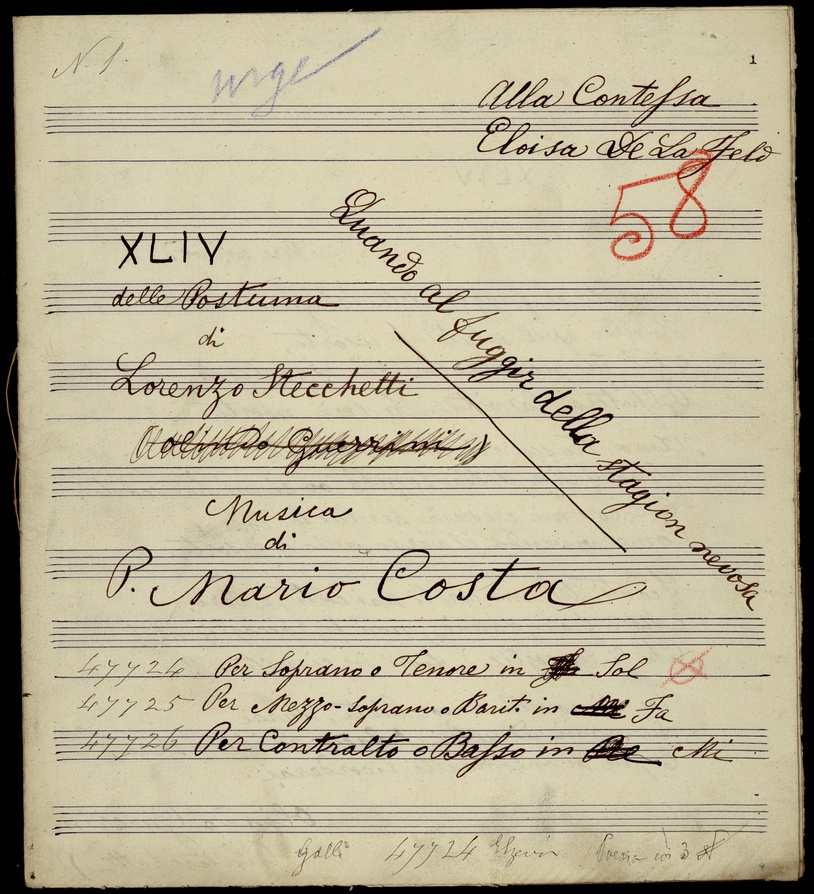 N. 1.
urge
1
Alla Contessa
Eloisa De La Feld
58
Quando al fuggir della stagion nevosa
XLIV
delle Postuma
di
Lorenzo Stecchetti
Guerrini
Musica
di
P. Mario Costa
47724 Per Soprano o Tenore in Sol
47725 Per Mezzo-soprano o Barit. in Fa
47726 Per Contralto o Basso in Mi
Galli 47724 Elzevir in 3